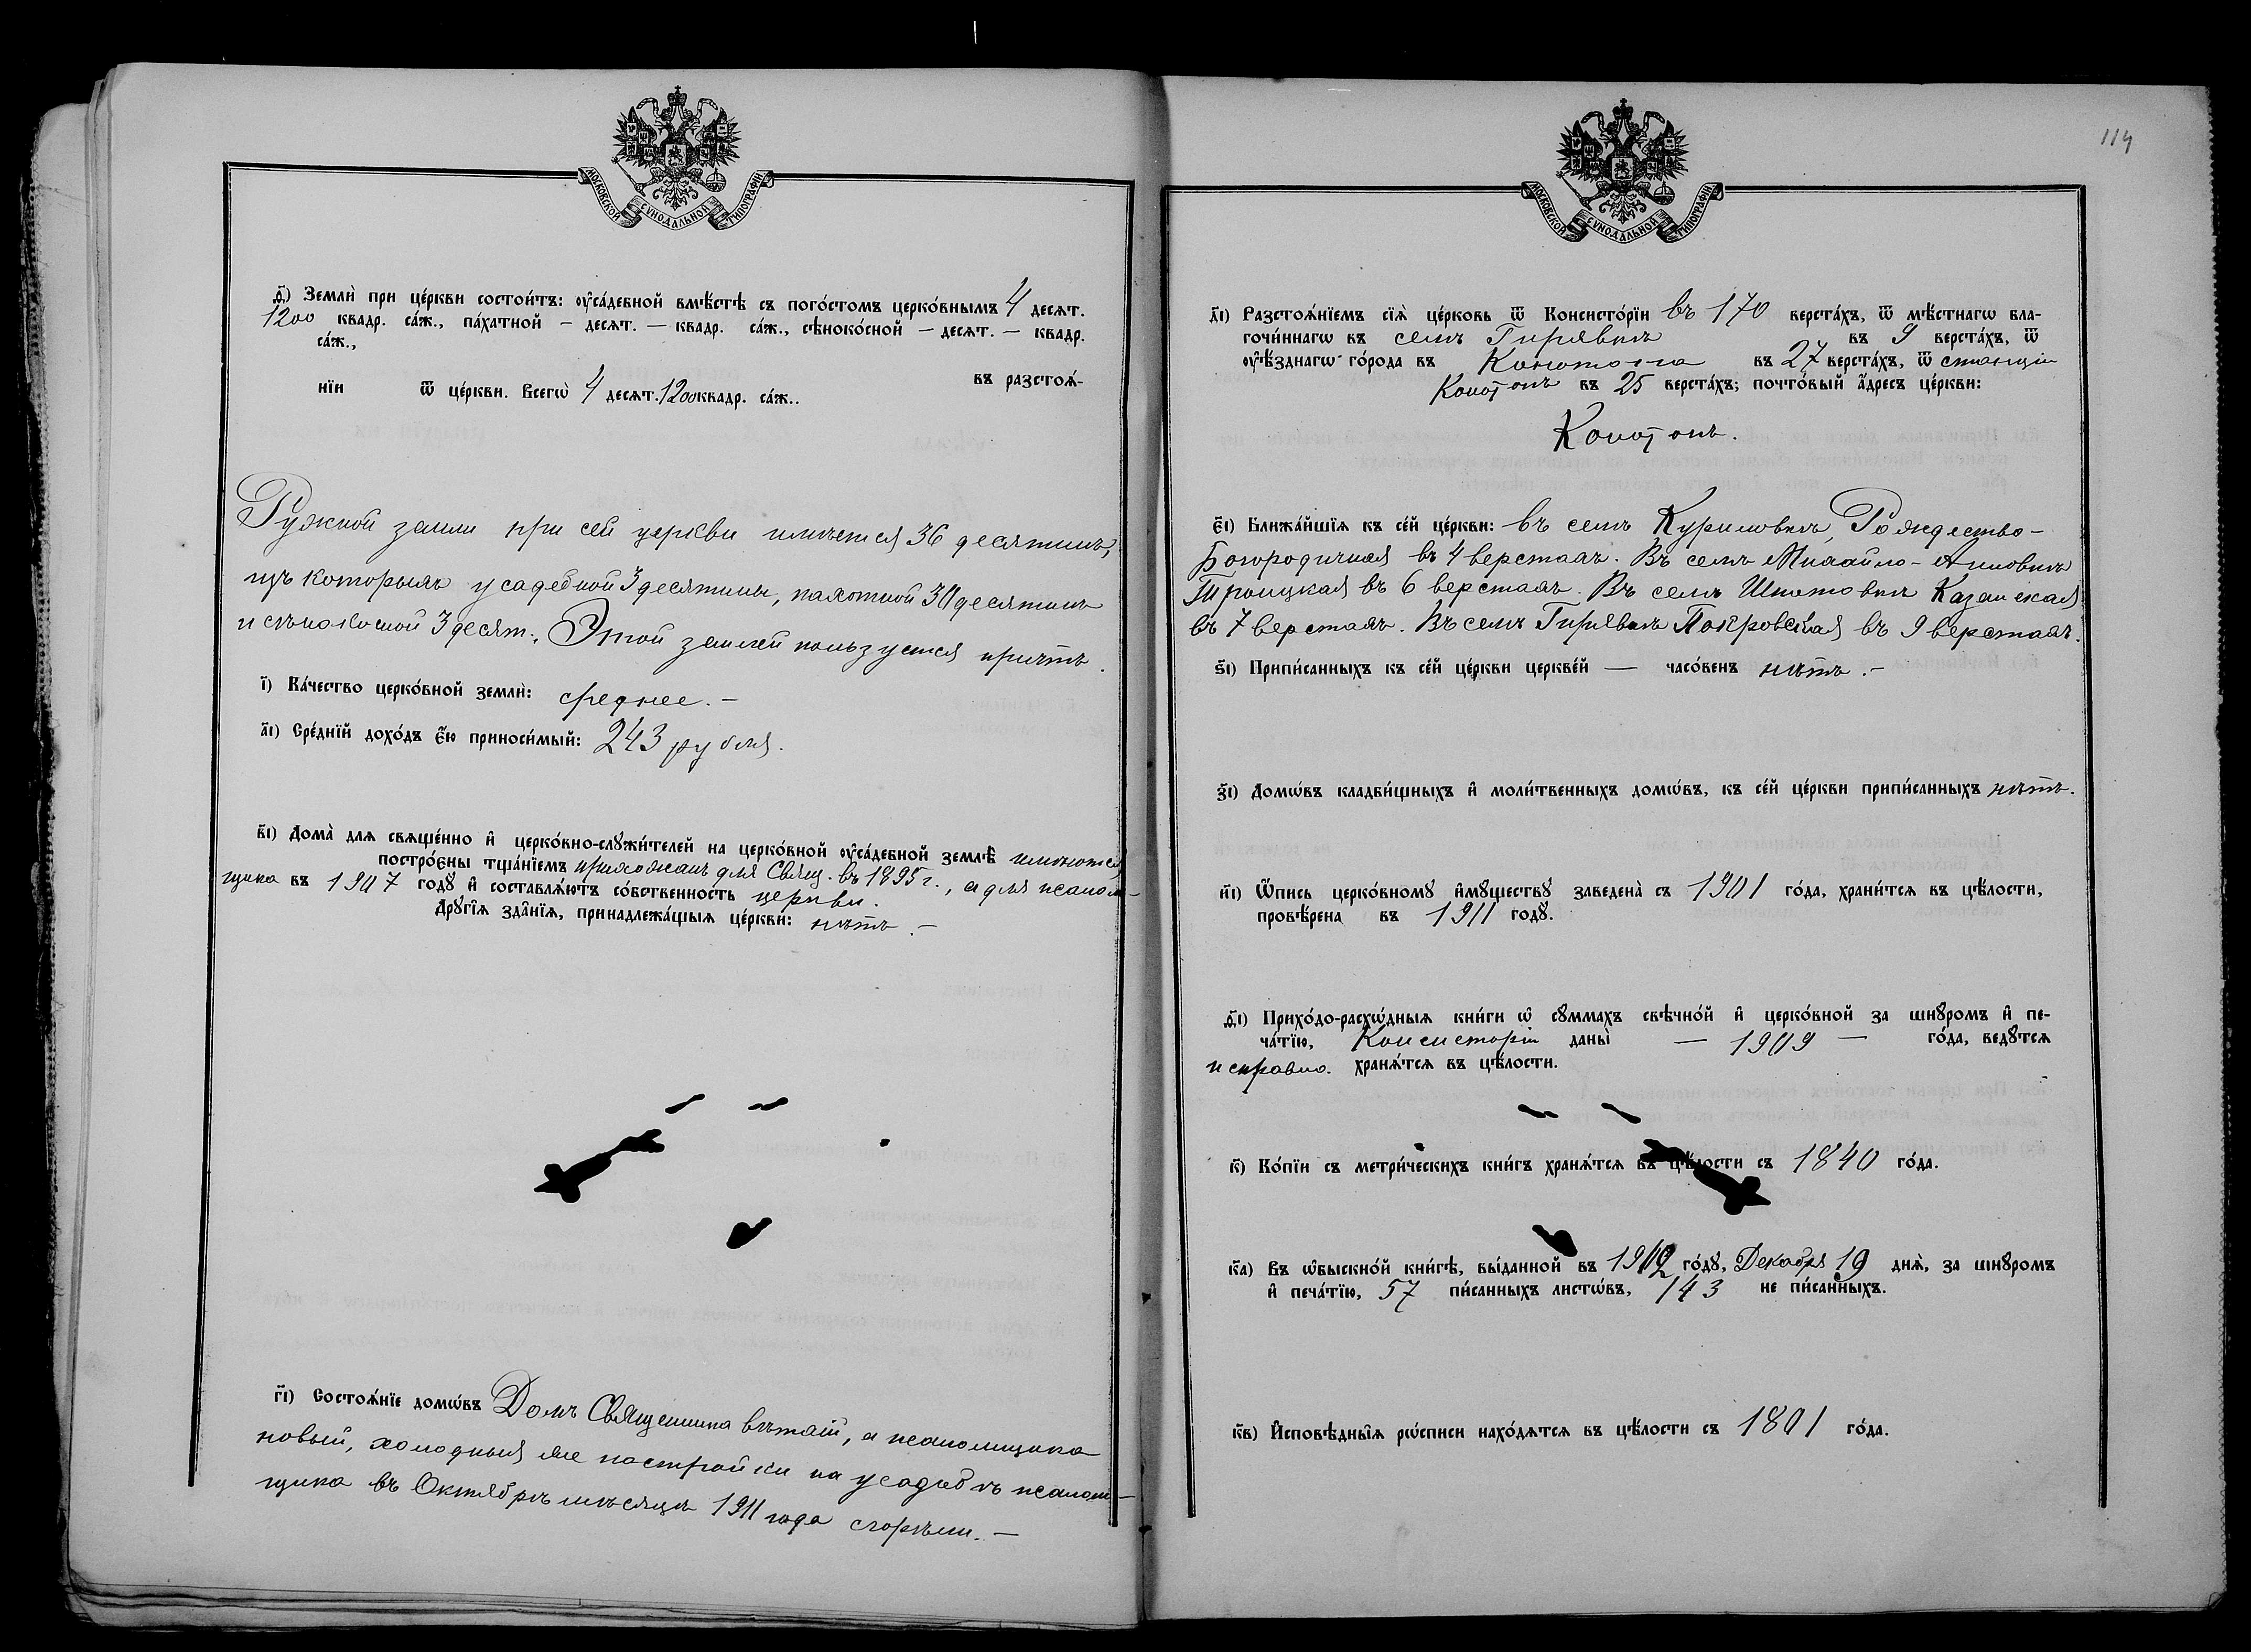 МОСКОВСКОЙ СѴНОДАЛЬНОЙ ТИПОГРАФІИ
ѳ҃) Землѝ при це́ркви состои́тъ: оуса́дебной вмѣ́стѣ съ пого́стомъ церко́внымъ 4 десят.
1200 квадр. са́ж., па́хатной — десят. — квадр. са́ж., сѣноко́сной — десят. — квадр.
са́ж.,
въ разстоѧ́-
нїи ѿ це́ркви. Всегѡ̀ 4 десѧт. 1200 квадр. са́ж..
Ружной земли при сей церкви имѣется 36 десятинъ,
изъ которыхъ усадебной 3 десятины, пахотной 30 десятинъ
и сѣнокосной 3 десят. Этой землей пользуется причтъ.
і҃) Ка́чество церко́вной землѝ: среднее. —
а҃і) Сре́днїй дохо́дъ є҆́ю приноси́мый: 243 рубля.
в҃і) Дома̀ для свяще́нно и҆ церко́вно-слꙋжи́телей на церко́вной оуса́дебной землѣ̀ имѣются,
постро́єны тща́нїемъ прихожанъ для Свящ. въ 1895 г., а для псалом-
щика въ 1907 годꙋ̀ и҆ составлѧ́ютъ со́бственность церкви.
Дрꙋгі̂ѧ зда̂нїѧ, принадлежа́щыѧ це́ркви: нѣтъ. —
г҃і) Состоѧ́нїе домѡ́въ Домъ Священника ветхій, а псаломщика
новый, холодныя же постройки на усадьбѣ псалом-
щика въ Октябрѣ мѣсяцѣ 1911 года сгорѣли. —
114
МОСКОВСКОЙ СѴНОДАЛЬНОЙ ТИПОГРАФІИ
д҃і) Разстоѧ́нїемъ сїѧ̀ це́рковь ѿ Консисто́рїи въ 170 верста́хъ, ѿ мѣ́стнагѡ бла-
гочи́ннагѡ въ селѣ Гирявкѣ въ 9 верста́хъ, ѿ
оуѣ́зднагѡ го́рода въ Конотопа въ 27 верста́хъ, ѿ станціи
Конотопъ въ 25 верста́хъ; почто́вый а҆́дресъ це́ркви:
Конотопъ.
є҃і) Ближа́йшїѧ къ се́й це́ркви: въ селѣ Куриловкѣ, Рождество-
Богородичная въ 4 верстахъ. Въ селѣ Михайло-Анновкѣ
Троицкая въ 6 верстахъ. Въ селѣ Шпотовкѣ Казанская
въ 7 верстахъ. Въ селѣ Гирявкѣ Покровская въ 9 верстахъ.
ѕ҃і) Припи́санныхъ къ се́й це́ркви церкве́й — часо́венъ нѣтъ. —
з҃і) Домѡ́въ кладби́щныхъ и҆ моли́твенныхъ домѡ́въ, къ се́й це́ркви припи́санныхъ нѣтъ.
и҃і) Ѻ҆́пись церко́вномꙋ и҆мꙋ́ществꙋ заведена̀ съ 1901 го́да, храни́тсѧ въ цѣ́лости,
провѣ́рена въ 1911 годꙋ̀.
ѳ҃і) Прихо́до-расхѡ́дныѧ кни́ги ѡ҆ сꙋ́ммахъ свѣчно́й и҆ церко́вной за шнꙋро́мъ и҆ пе-
ча́тїю, Консисторіи даны̀ — 1909 — го́да, ведꙋ́тсѧ
исправно. хранѧ́тсѧ въ цѣ́лости.
к҃) Ко́пїи съ метри́ческихъ кни́гъ хранѧ́тсѧ въ цѣ́лости съ 1840 го́да.
к҃а) Въ ѡ҆быскно́й кни́гѣ, вы́данной въ 1902 го́дꙋ, Декабря 19 днѧ̀, за шнꙋро́мъ
и҆ печа́тїю, 57 пи́санныхъ листѡ́въ, 143 не пи́санныхъ.
к҃в) И҆сповѣ̑дныѧ рѡ́списи нахо́дѧтсѧ въ цѣ́лости съ 1801 го́да.